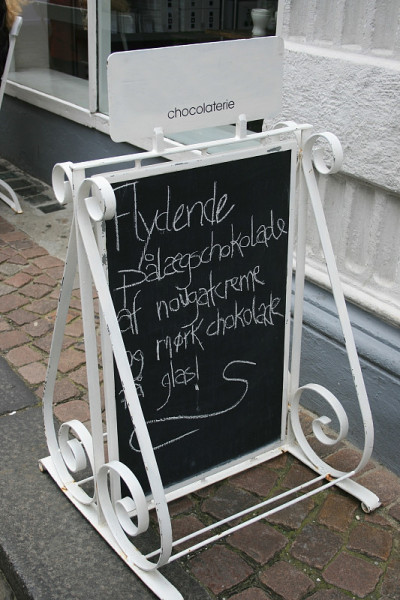 chocolaterie
Flydende
pålægschokolade
af nougatcreme
og mørk chokolade
på glas!